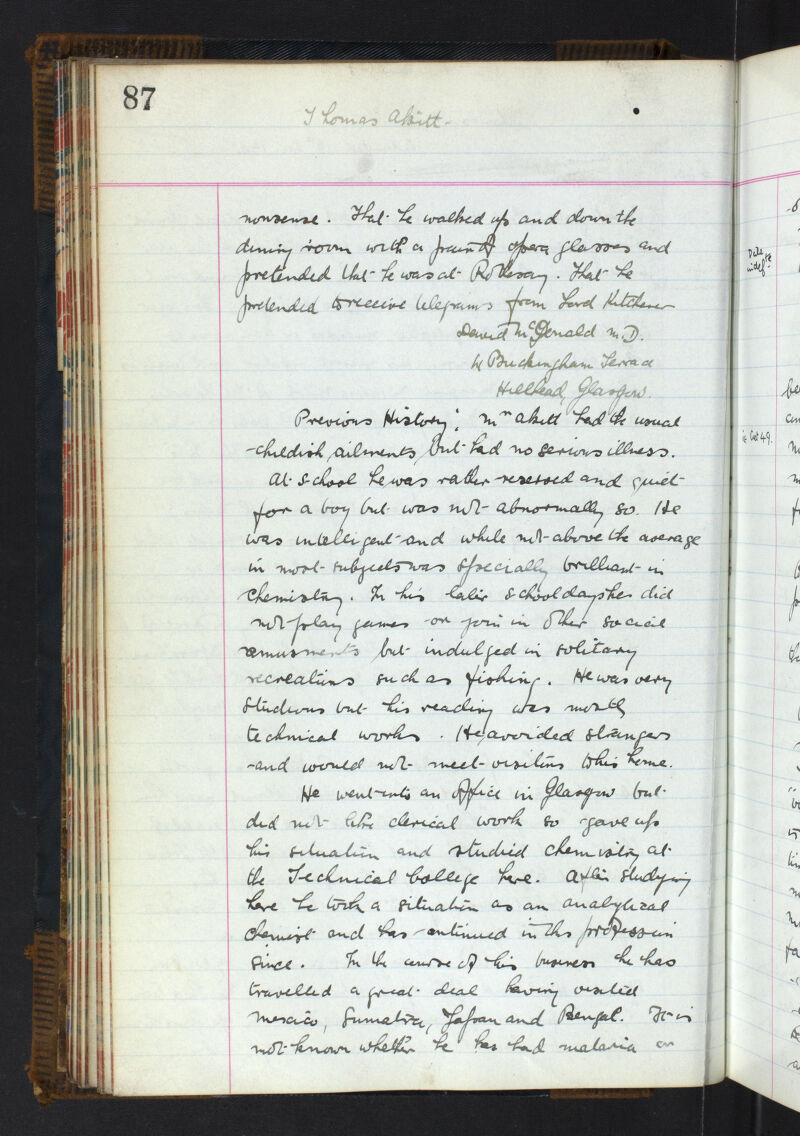 87
Thomas Akitt
nonsense. That he walked up and down the
dining room with a pair of opera glasses and
pretended that he was at Rothesay. That he
pretended to receive telegrams from Lord Kitchener
David McDonald M.D.
Buckingham Terrace
Hillhead, Glasgow.
Previous History: Mr Akitt had the usual
childish ailments, but had no serious illness.
At school he was rather reserved and quiet
for a boy but was not abnormally so. He
was intelligent and while not above the average
in most subjects was specially brilliant in
chemistry. In his later schooldays he did
not play games or join in other social
amusments but indulged in solitary
recreations such as fishing. He was very
studious but his reading was mostly
technical works. He avoided strangers
and would not meet visitors to his home.
He went into an office in Glasgow but
did not like clerical work so gave up
his situation and studied chemistry at
the Technical College here. After studying
here he took a situation as an analytical
chemist and has continued in this profession
since. In the course of his business he has
travelled a great deal having visited
Mexico, Sumatra, Japan and Bengal. It is
not known whether he has had malaria or
Date
indefte